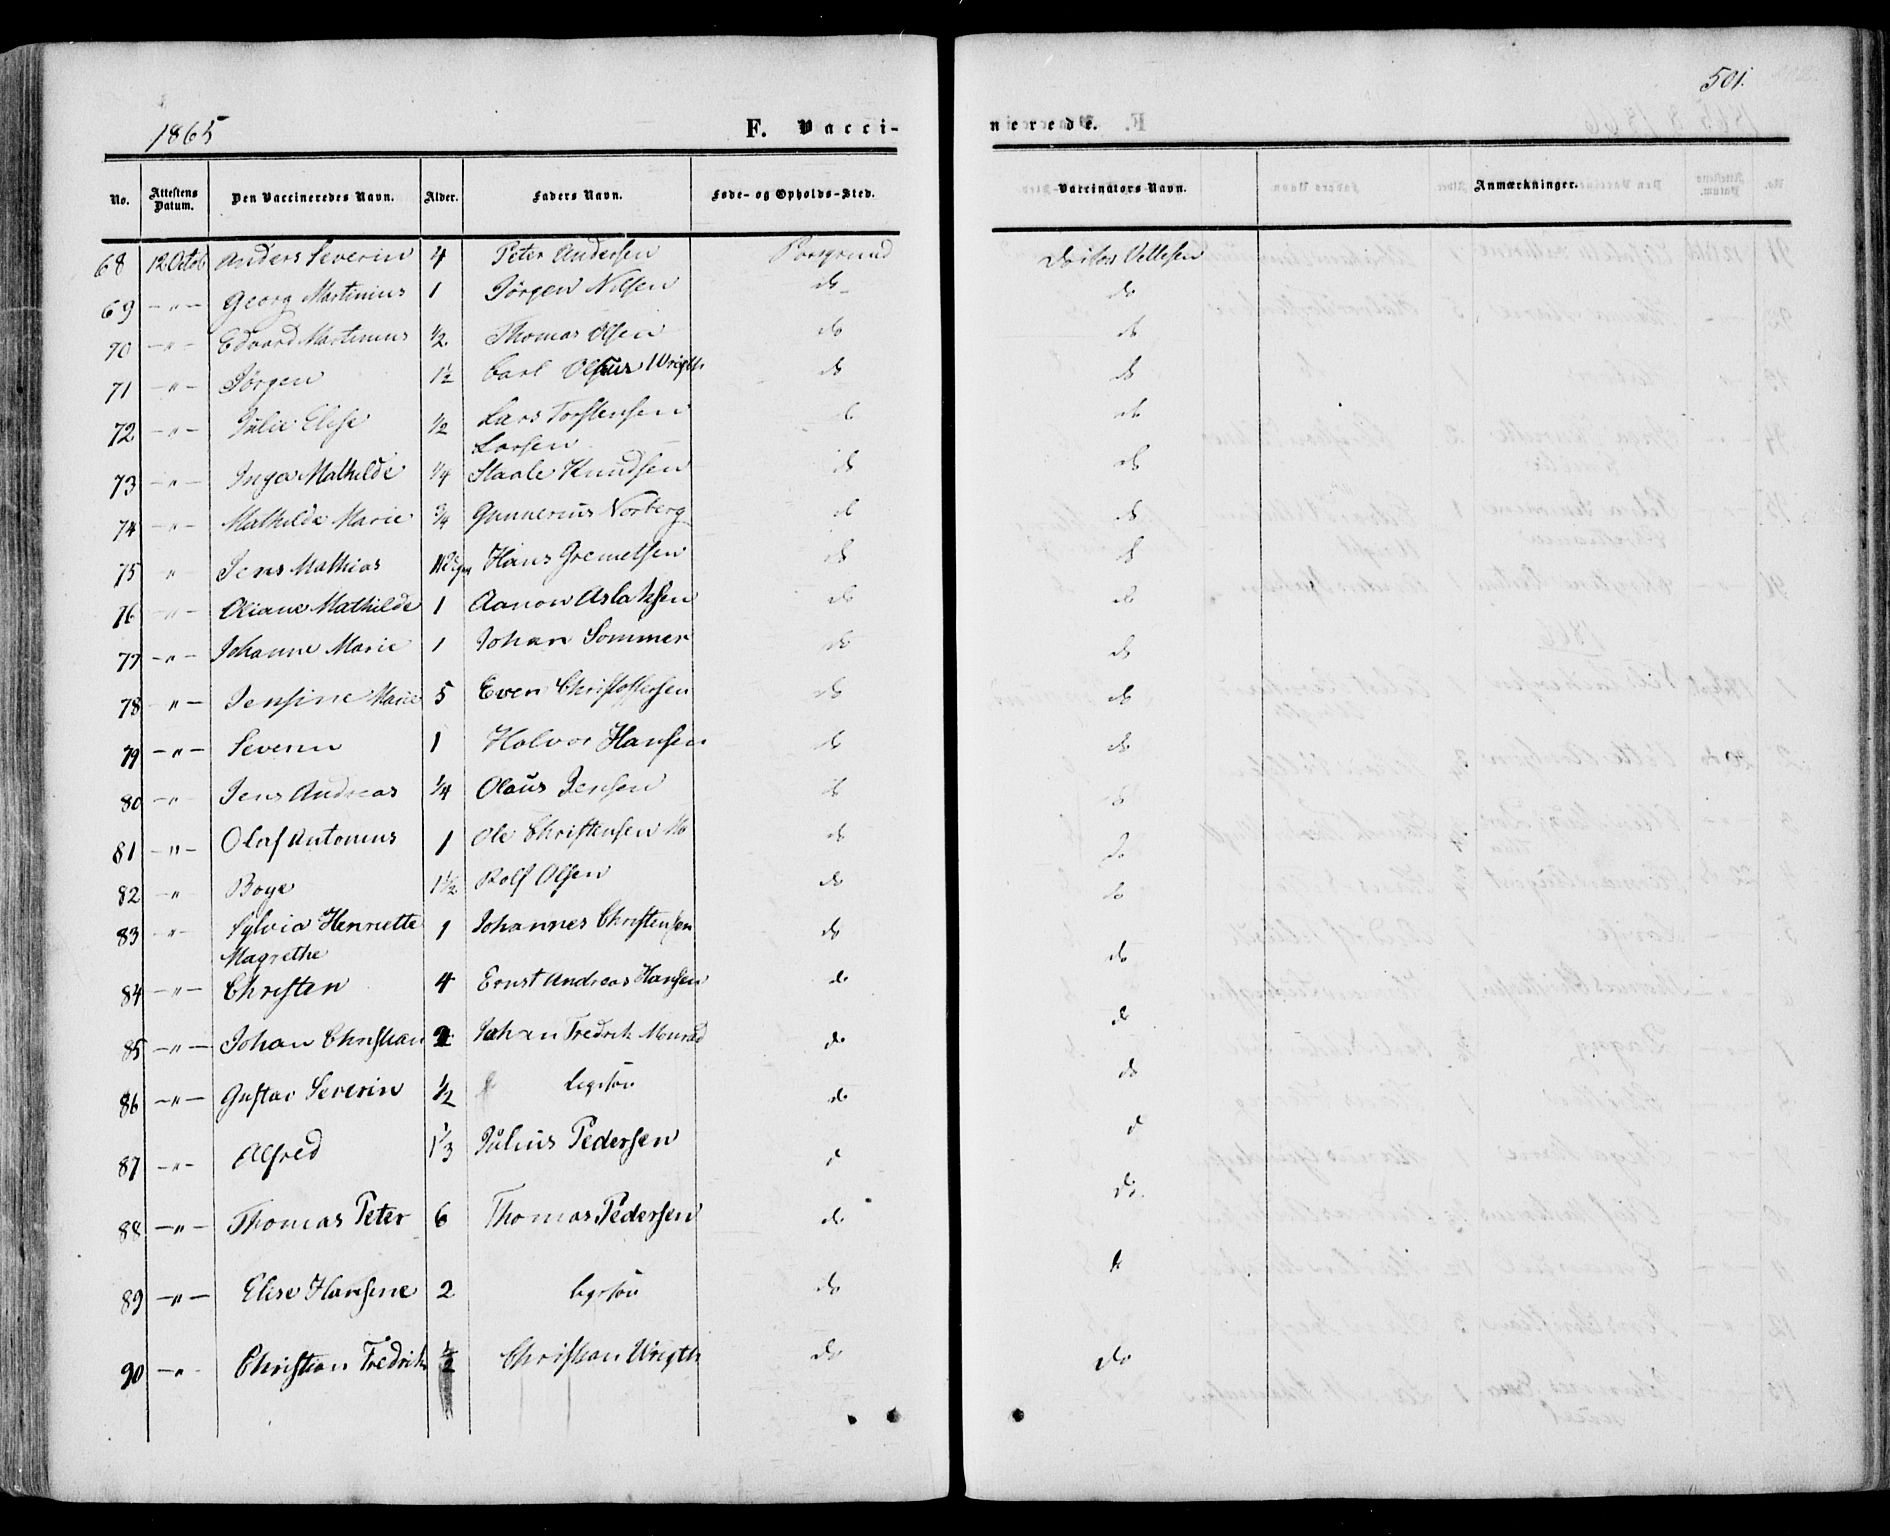 501.
1865
F. Vacci-
nerede.
No. Attestens Datum. Den Vaccineredes Navn. Alder. Faders Navn. Føde- og Opholds-Sted. Vaccinators Navn. Anmærkninger.
68 12 Octob Anders Severin 4 Peter Andersen Porsgrund Vettesen
69 -"- Georg Martinius 1 Jørgen Nilsen do do
70 -"- Edvard Martinius 1/2 Thomas Olsen do do
71 -"- Jørgen 1 1/2 Carl Wrigth do do
72 -"- Julie Elise 1/2 Lars Torstensen do do
Larsen
73 -"- Inga Mathilde 1/4 Staale Knudsen do do
74 -"- Mathilde Marie 3/4 Gunnerius Norberg do do
75 " Jens Mathias Hans Gremetsen do do
76 -"- Oliane Mathilde 1 Aanon Aslaksen do do
77 -"- Johanne Marie 1 Johan Sommer do do
78 -"- Jensine Marie 5 Even Christoffersen do do
79 -"- Severin 1 Halvor Hansen do do
80 -"- Jens Andreas 1/4 Olaus Jensen do do
81 -"- Olaf Antonius 1 Ole Christensen do do
82 -"- Boye 1 1/2 Rolf Olsen do do
83 -"- Sylvia Henriette 1 Johannes Christensen do do
Magrethe
84 -"- Christen 4 Ernst Andreas Hansen do do
85 -"- Johan Christian 2 Johan Fredrik Monrad do do
86 -"- Gustav Severin 1/2 do do
87 -"- Alfred 1 1/3 Julius Pedersen d d
88 -"- Thomas Peter 6 Thomas Pedersen do do.
89 -"- Elise Hansine 2 do do
90 -"- Christian Fredrik 1/2 Christian Wrigth do do